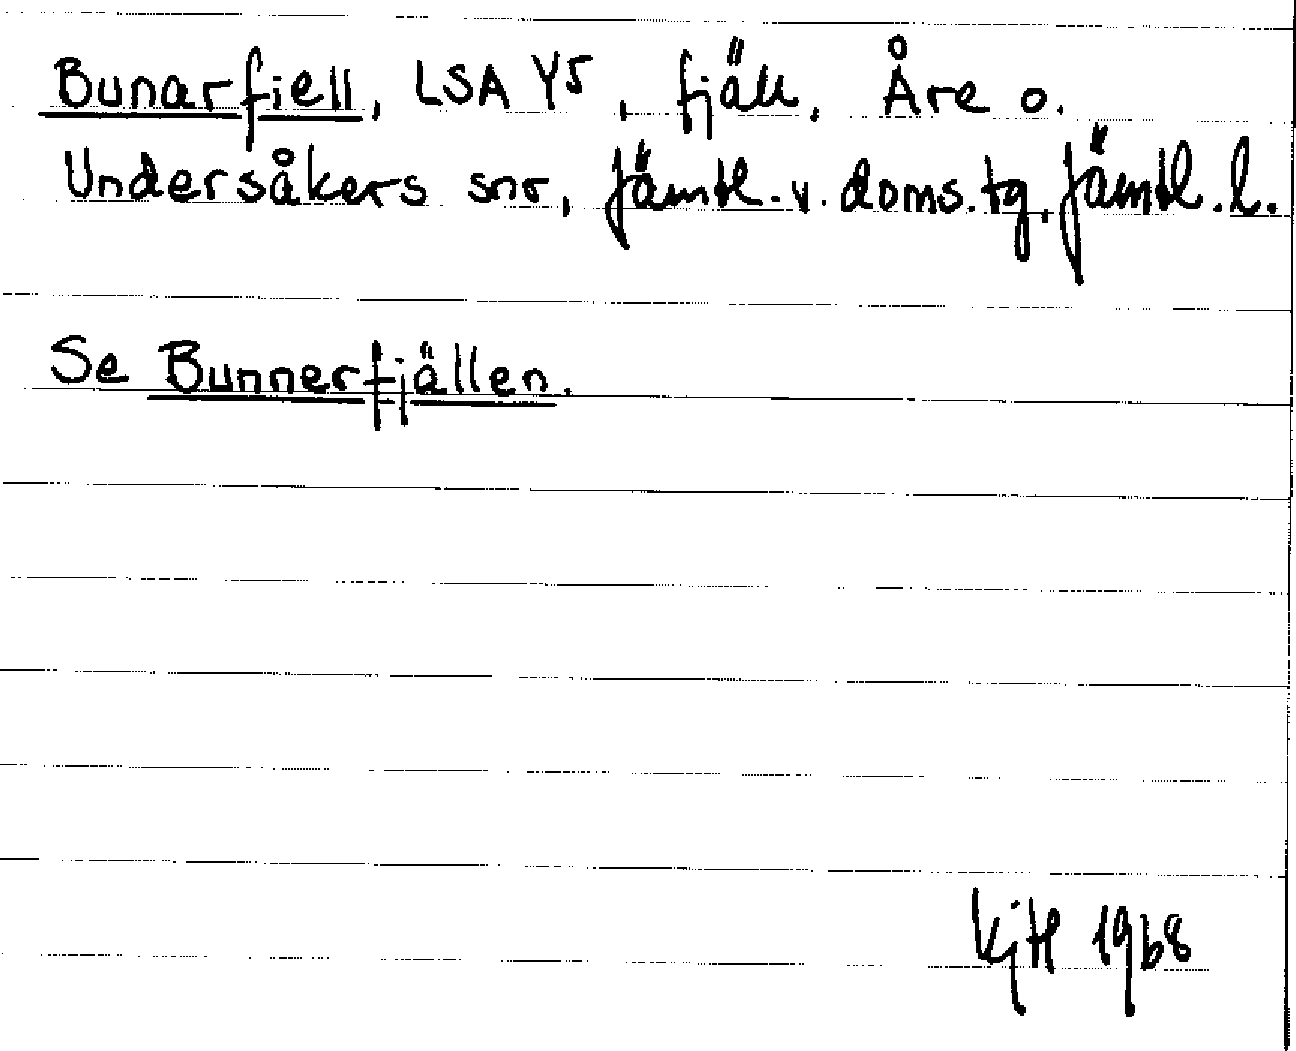 Bunarfiell, LSA Y5, fjäll, Åre o.
Undersåkers snr, Jämtl. v. doms. tg, Jämtl. l.
Se Bunnerfjällen.
1968